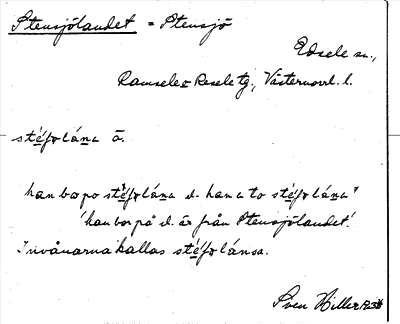 Stensjölandet = Stensjö
Edsele sn.,
Ramsele o Resele tg., Västernorrl. l.
stéfolána ö.
han bor po stéfolána d. han a to stéfolána"
'han bor på d. är från Stensjölandet'.
Invånarna kallas stéfolánsa.
Sven Hiller 1934